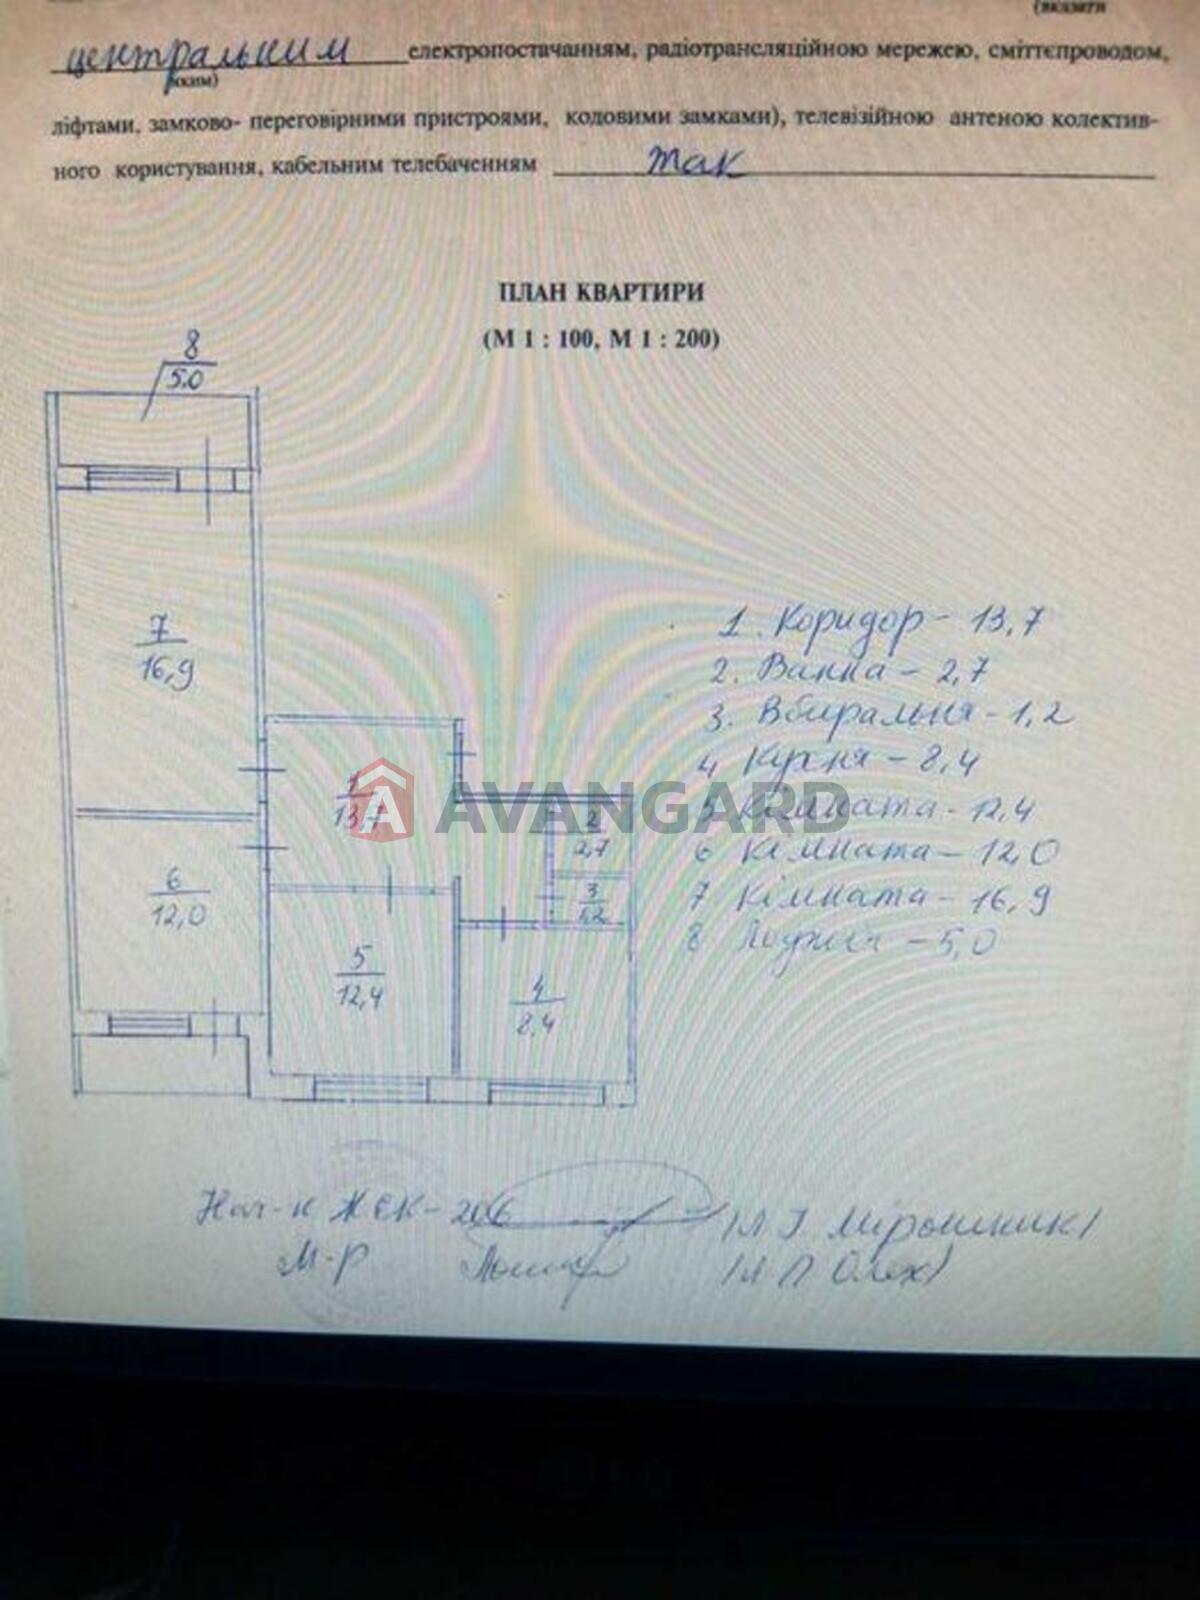 (вказати
центральним електропостачанням, радіотрансляційною мережею, сміттєпроводом,
яким)
ліфтами, замково- переговірними пристроями, кодовими замками), телевізійною антеною колектив-
ного користування, кабельним телебаченням так
ПЛАН КВАРТИРИ
(М 1 : 100, М 1 : 200)
8
5.0
7
16,9
1
13,7
2
2,7
3
1,2
6
12,0
5
12,4
4
8.4
AVANGARD
1. Коридор - 13,7
2. Ванна - 2,7
3. Вбиральня - 1,2
4 Кухня - 8,4
5 Кімната - 12,4
6 Кімната - 12,0
7 Кімната - 16,9
8 Лоджія - 5,0
Нач-к ЖЕК-206 /Л І Мірошник/
М-р /Л П Олех/